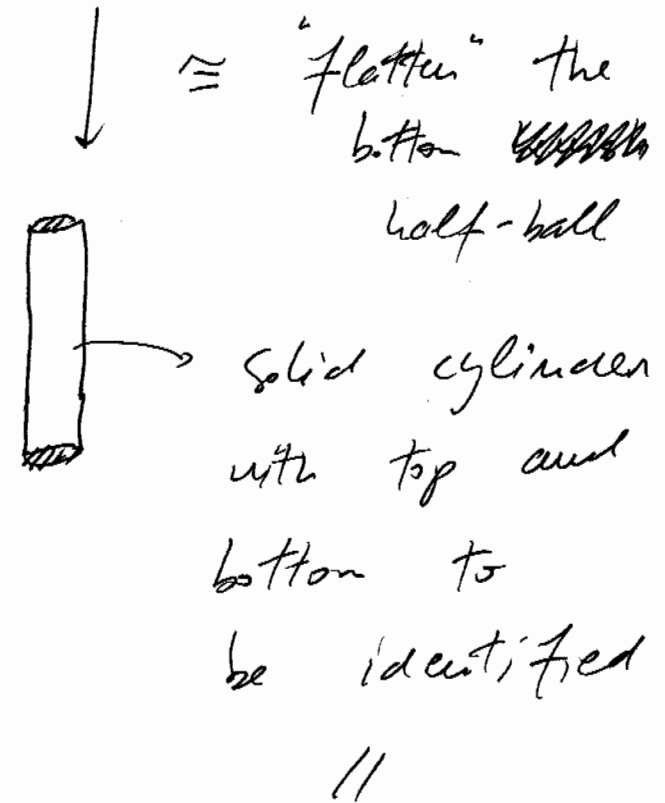 ≅ "flatten" the
bottom
half-ball
solid cylinder
with top and
bottom to
be identified
//